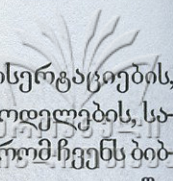 ისერტაციების,
ოდელების, სა-
რომ ჩვენს ბიბ-